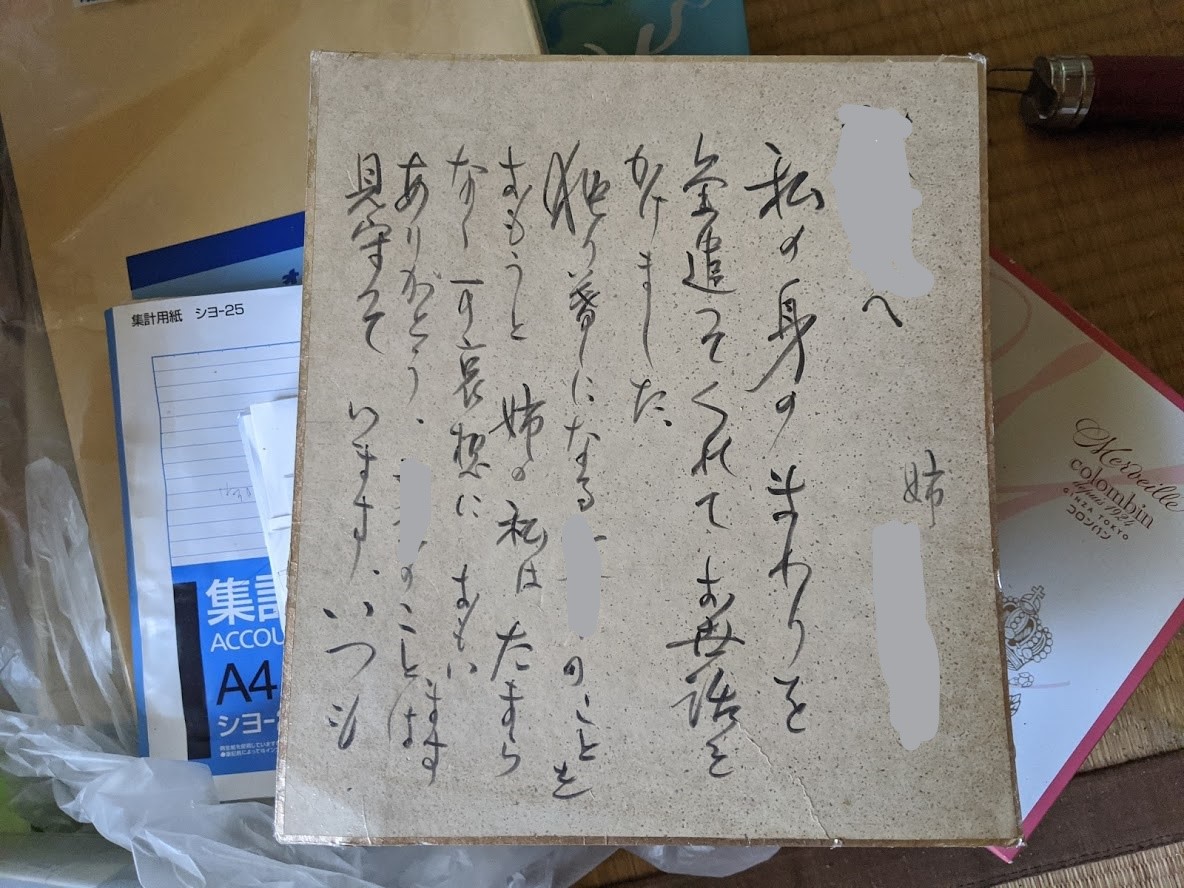 へ
姉
私の身のまわりを
全追ってくれて お世話を
かけました
独り暮しになる のことを
おもうと 姉の私は たまら
なく 可哀想に おもいます
ありがとう、 のことは
見守って います、いつも
集計用紙 シヨ-25
集計
ACCOU
A4
シヨ-
Merveille
colombin
depuis 1924
GINZA TOKYO
コロンバン